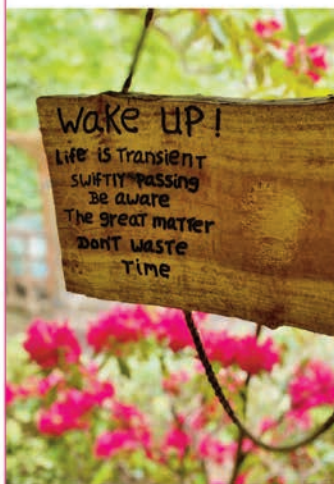 Wake UP!
Life is Transient
SWIFTLY Passing
Be aware
The great matter
Don't waste
Time